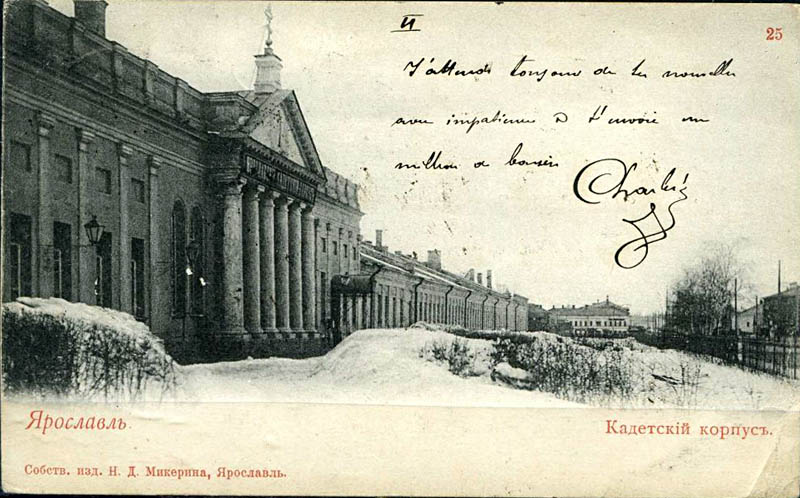 II
25
J'attends toujours de tes nouvelles
avec impatience & t'envoie un
million de baisers
Charles
Ярославль
Кадетскій корпусъ.
Собств. изд. Н. Д. Микерина, Ярославль.